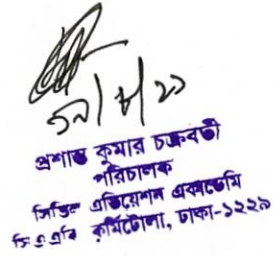 প্রশান্ত কুমার চক্রবর্তী
পরিচালক
সিভিল এভিয়েশন একাডেমি
সিএএবি কুর্মিটোলা, ঢাকা-১২২৯